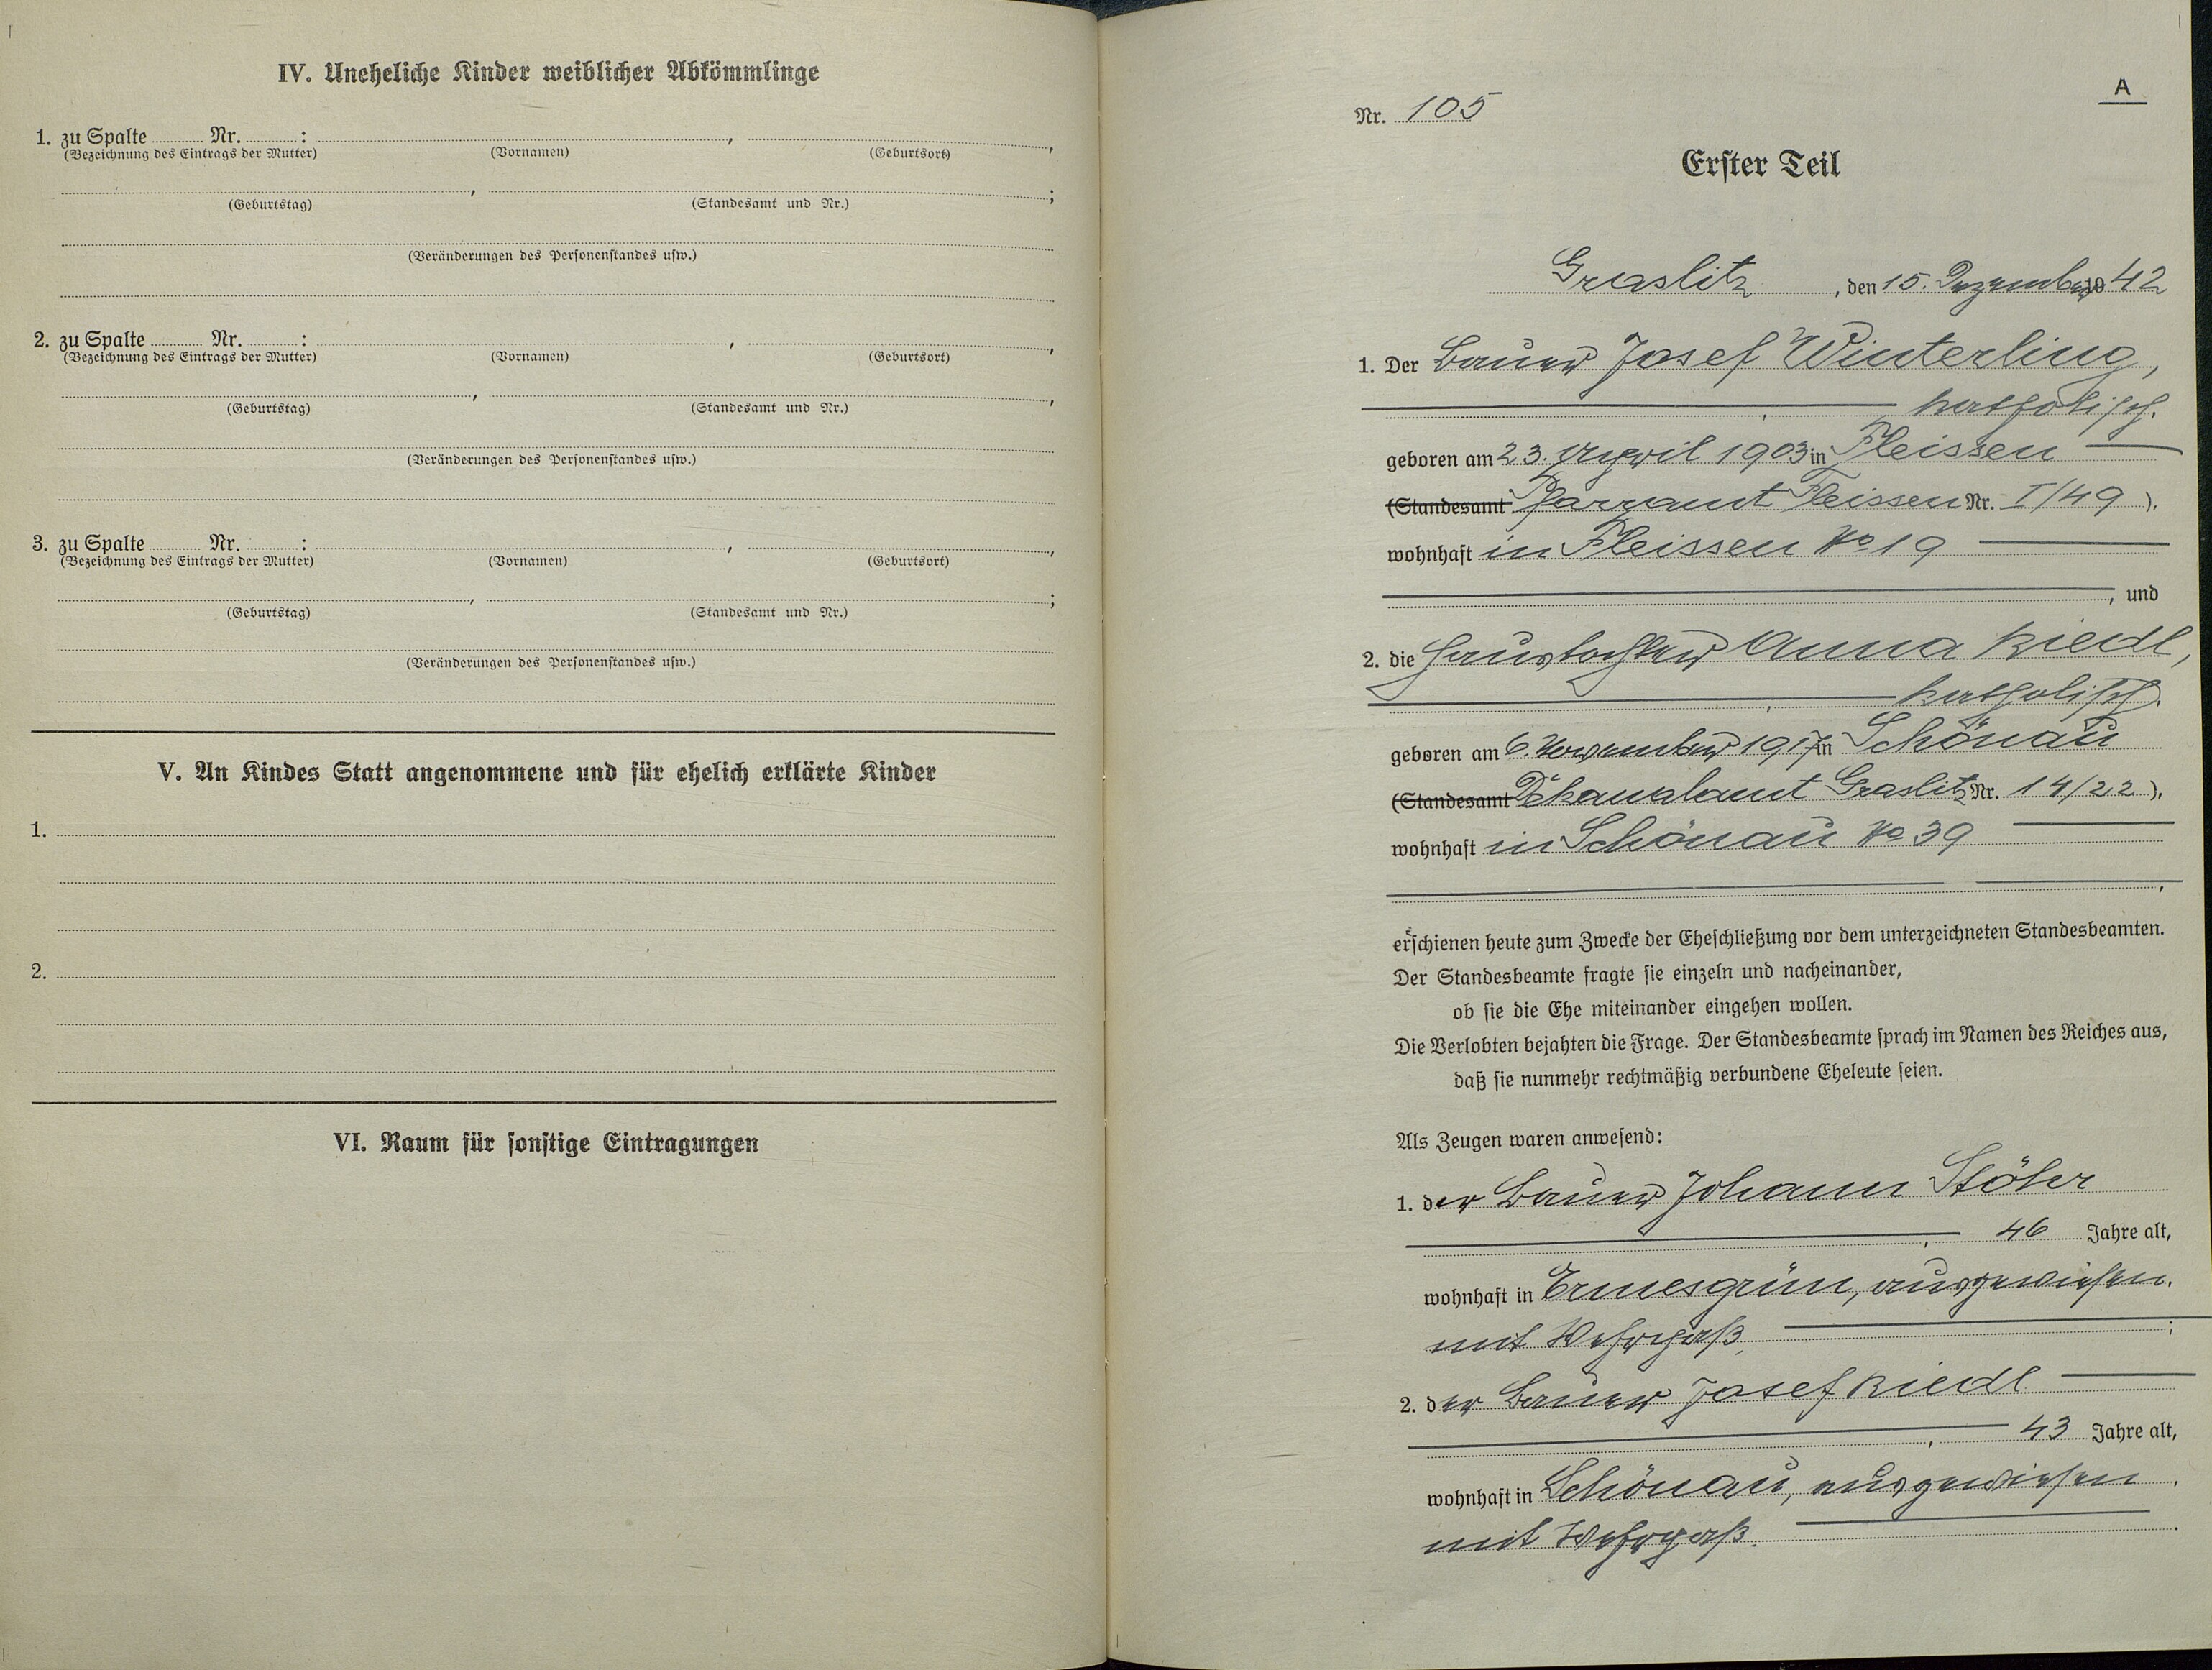 IV. Uneheliche Kinder weiblicher Abkömmlinge
1. zu Spalte ........ Nr. ........ : ........ , ........ ,
(Bezeichnung des Eintrags der Mutter) (Vornamen) (Geburtsort)
........ , ........ ;
(Geburtstag) (Standesamt und Nr.)
(Veränderungen des Personenstandes usw.)
2. zu Spalte ........ Nr. ........ : ........ , ........ ,
(Bezeichnung des Eintrags der Mutter) (Vornamen) (Geburtsort)
........ , ........ ,
(Geburtstag) (Standesamt und Nr.)
(Veränderungen des Personenstandes usw.)
3. zu Spalte ........ Nr. ........ : ........ , ........ ,
(Bezeichnung des Eintrags der Mutter) (Vornamen) (Geburtsort)
........ , ........ ;
(Geburtstag) (Standesamt und Nr.)
(Veränderungen des Personenstandes usw.)
V. An Kindes Statt angenommene und für ehelich erklärte Kinder
1.
2.
VI. Raum für sonstige Eintragungen
A
Nr. 105
Erster Teil
Graslitz, den 15. Dezember 1942
1. Der Bauer Josef Winterling,
, katholisch.
geboren am 23. April 1903 in Fleissen
(Standesamt Pfarramt Fleissen Nr. I/49 ),
wohnhaft in Fleissen No 19
, und
2. die Haustochter Anna Riedl,
, katholisch,
geboren am 6. November 1917 in Schönau
(Standesamt Dekanalamt Graslitz Nr. 14/22 ),
wohnhaft in Schönau No 39
,
erschienen heute zum Zwecke der Eheschließung vor dem unterzeichneten Standesbeamten.
Der Standesbeamte fragte sie einzeln und nacheinander,
ob sie die Ehe miteinander eingehen wollen.
Die Verlobten bejahten die Frage. Der Standesbeamte sprach im Namen des Reiches aus,
daß sie nunmehr rechtmäßig verbundene Eheleute seien.
Als Zeugen waren anwesend:
1. der Bauer Johann Stöhr
, 46 Jahre alt,
wohnhaft in Ermesgrün, ausgewiesen
mit Wehrpaß. ;
2. der Bauer Josef Riedl
, 43 Jahre alt,
wohnhaft in Schönau, ausgewiesen
mit Wehrpaß.